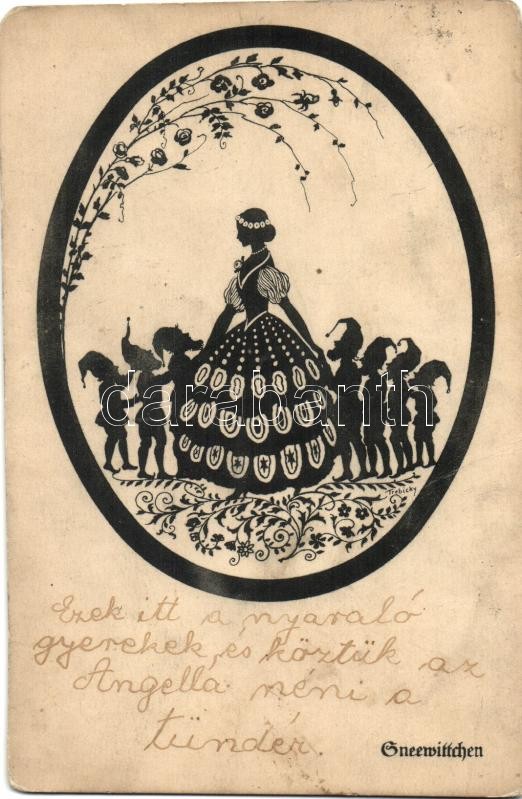 darabanth
Trebicky
Ezek itt a nyaraló
gyerekek, és köztük az
Angella néni a
tündér.
Sneewittchen